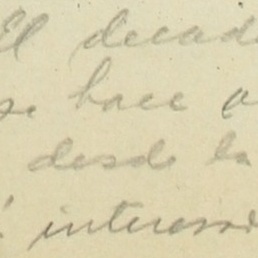 El decad
se hace a
desde la
interesa